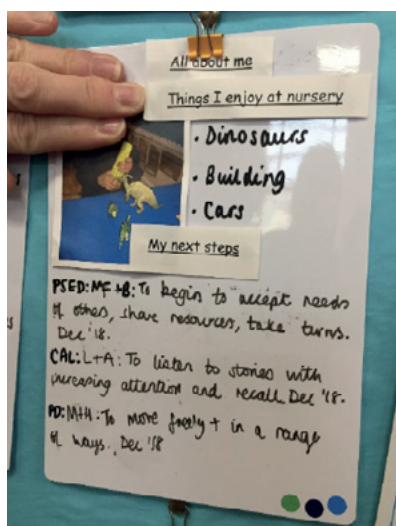 All about me
Things I enjoy at nursery
• Dinosaurs
• Building
• Cars
My next steps
PSED: MF+B: To begin to accept needs
of others, share resources, take turns.
Dec '18.
CAL: L+A: To listen to stories with
increasing attention and recall Dec '18.
PD: M+H: To move freely + in a range
of ways. Dec '18